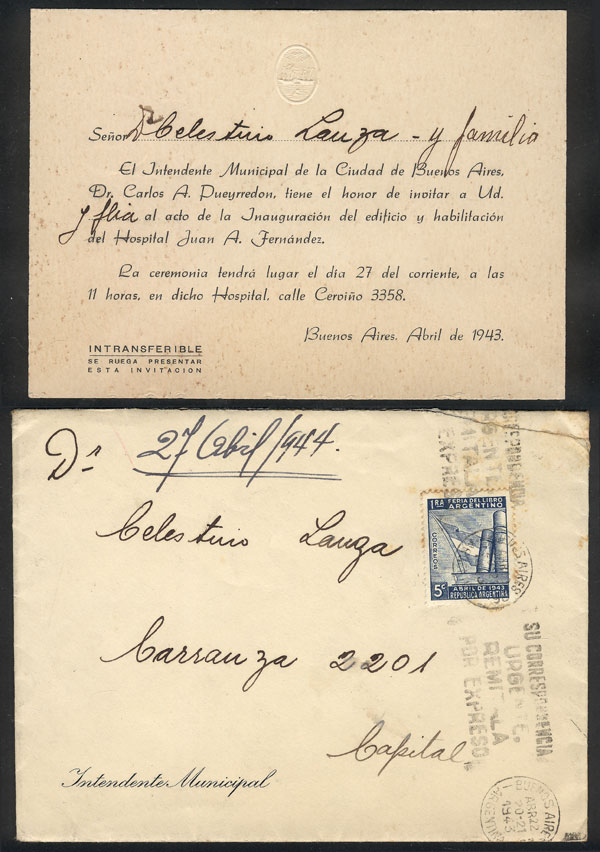 Señor Dr Celestino Lanza - y familia
El Intendente Municipal de la Ciudad de Buenos Aires,
Dr. Carlos A. Pueyrredon, tiene el honor de invitar a Ud.
y flia al acto de la Inauguración del edificio y habilitación
del Hospital Juan A. Fernández.
La ceremonia tendrá lugar el día 27 del corriente, a las
11 horas, en dicho Hospital, calle Cerviño 3358.
Buenos Aires, Abril de 1943.
INTRANSFERIBLE
SE RUEGA PRESENTAR
ESTA INVITACION
27 Abril/944.
Dr
Celestino Lanza
Carranza 2201
Capital
Intendente Municipal
1RA FERIA DEL LIBRO
ARGENTINO
CORREOS
5c
ABRIL DE 1943
REPUBLICA ARGENTINA
SU CORRESPONDENCIA
URGENTE.
REMITALA
POR EXPRESO
BUENOS AIRES
ABR 22
20-21
1943